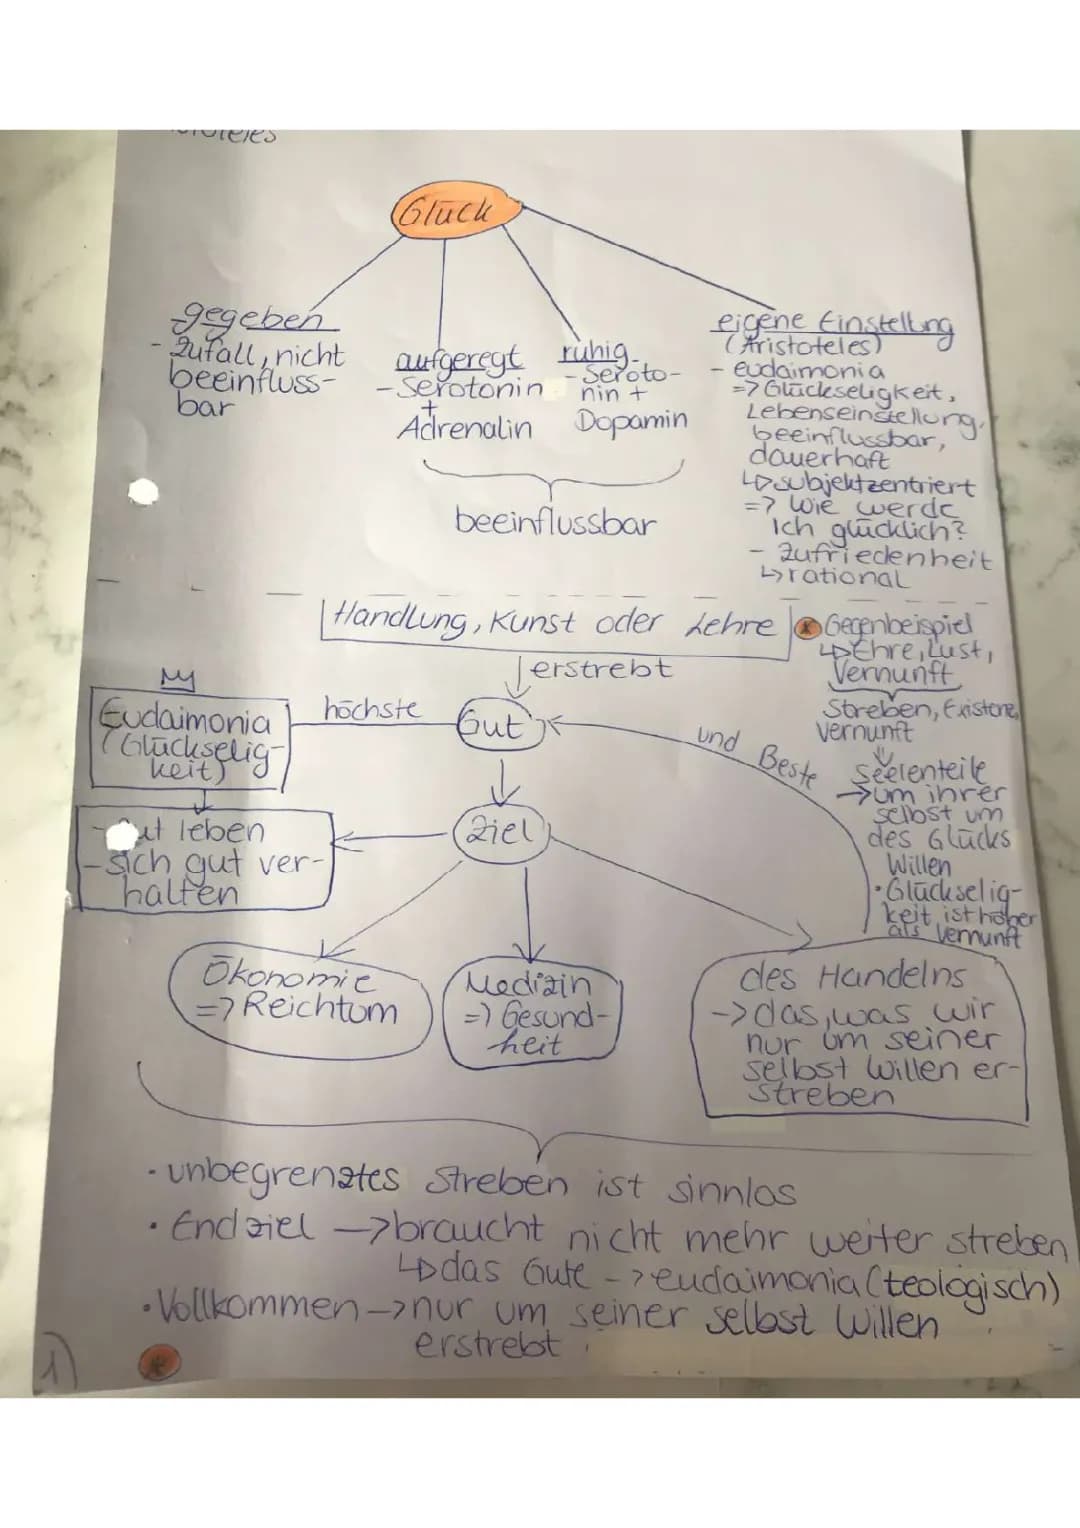 Glück
gegeben
- Zufall, nicht
beeinfluss-
bar
aufgeregt
- Serotonin
+
Adrenalin
ruhig
- Seroto-
nin +
Dopamin
beeinflussbar
eigene Einstellung
(Aristoteles)
- eudaimonia
=> Glückseligkeit,
Lebenseinstellung,
beeinflussbar,
dauerhaft
↳ subjektzentriert
=> Wie werde
Ich glücklich?
- Zufriedenheit
↳ rational
Handlung, Kunst oder Lehre
erstrebt
Gut
höchste
Eudaimonia
(Glückselig-
keit)
- Gut leben
- sich gut ver-
halten
Ziel
und Beste
Ökonomie
=> Reichtum
Medizin
=> Gesund-
heit
des Handelns
-> das, was wir
nur um seiner
selbst Willen er-
streben
* Gegenbeispiel
↳ Ehre, Lust,
Vernunft
Streben, Existenz,
vernunft
Seelenteile
→ um ihrer
selbst um
des Glücks
Willen
• Glückselig-
keit ist höher
als Vernunft
• unbegrenztes Streben ist sinnlos
• Endziel -> braucht nicht mehr weiter streben
↳ das Gute -> eudaimonia (teologisch)
• Vollkommen -> nur um seiner selbst Willen
erstrebt
1) *